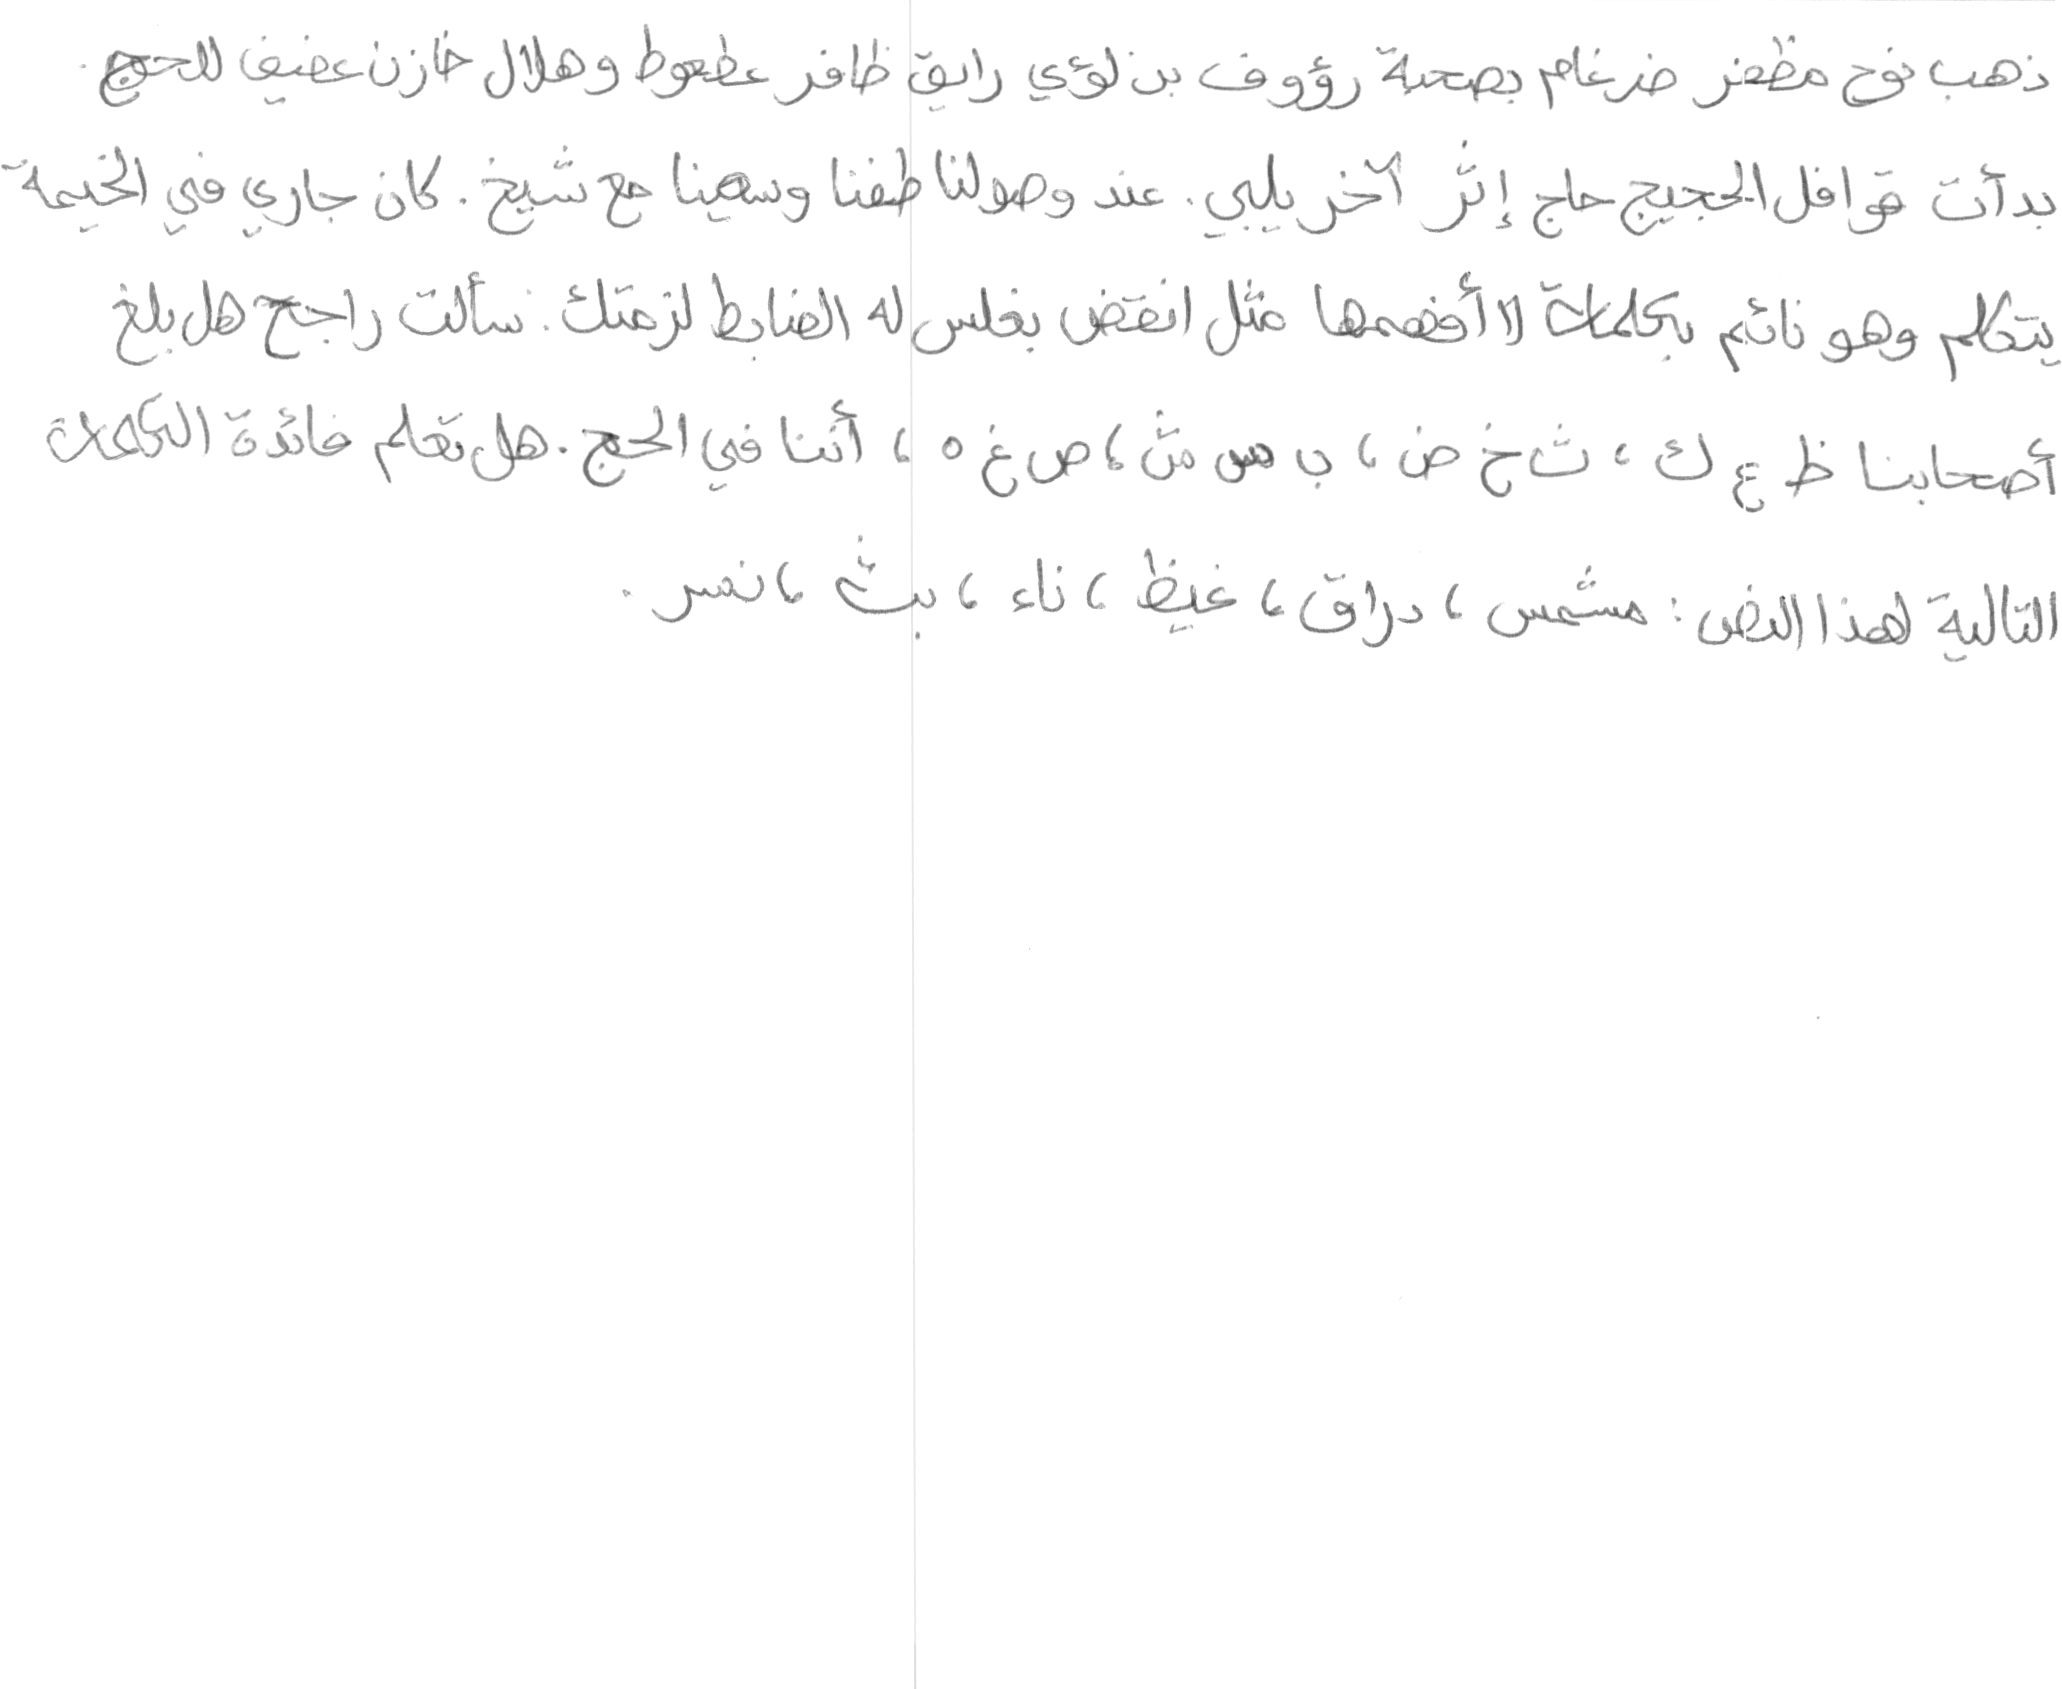 ذهب نوح مظفر ضرغام بصحبة رؤوف بن لؤي رايق ظافر عطعوط وهلال خازن عفيف للحج.
بدأت قوافل الحجيج حاج إثر آخر يلبي. عند وصولنا طفنا وسعينا مع شيخ. كان جاري في الخيمة
يتكلم وهو نائم بكلمات لا أفهمها مثل انقض بغلس له الضابط لزمتك. سألت راجح هل بلغ
أصحابنا ظ ع ك، ث خ ض، ب س ش، ص غ ه، أننا في الحج. هل تعلم فائدة الكلمات
التالية لهذا النص: مشمس، دراق، غيظ، ناء، بث، نمس.